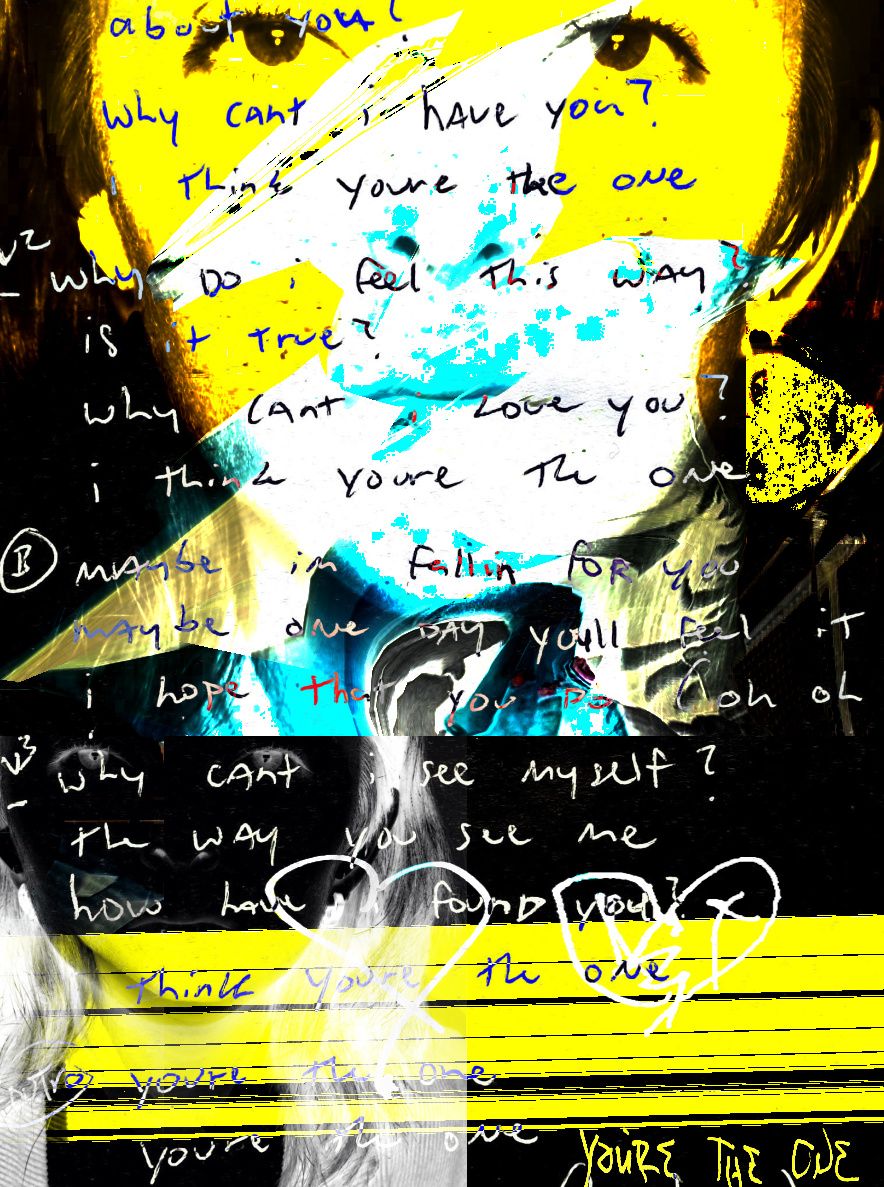 about you?
why cant i have you?
i think youre the one
v2
why do i feel this way?
is it true?
why cant i love you?
i think youre the one
B
maybe im fallin for you
maybe one day youll feel it
i hope that you do (oh oh
v3
why cant i see myself?
the way you see me
how have i found you?
think youre the one
youre the one
youre the one
YOURE THE ONE